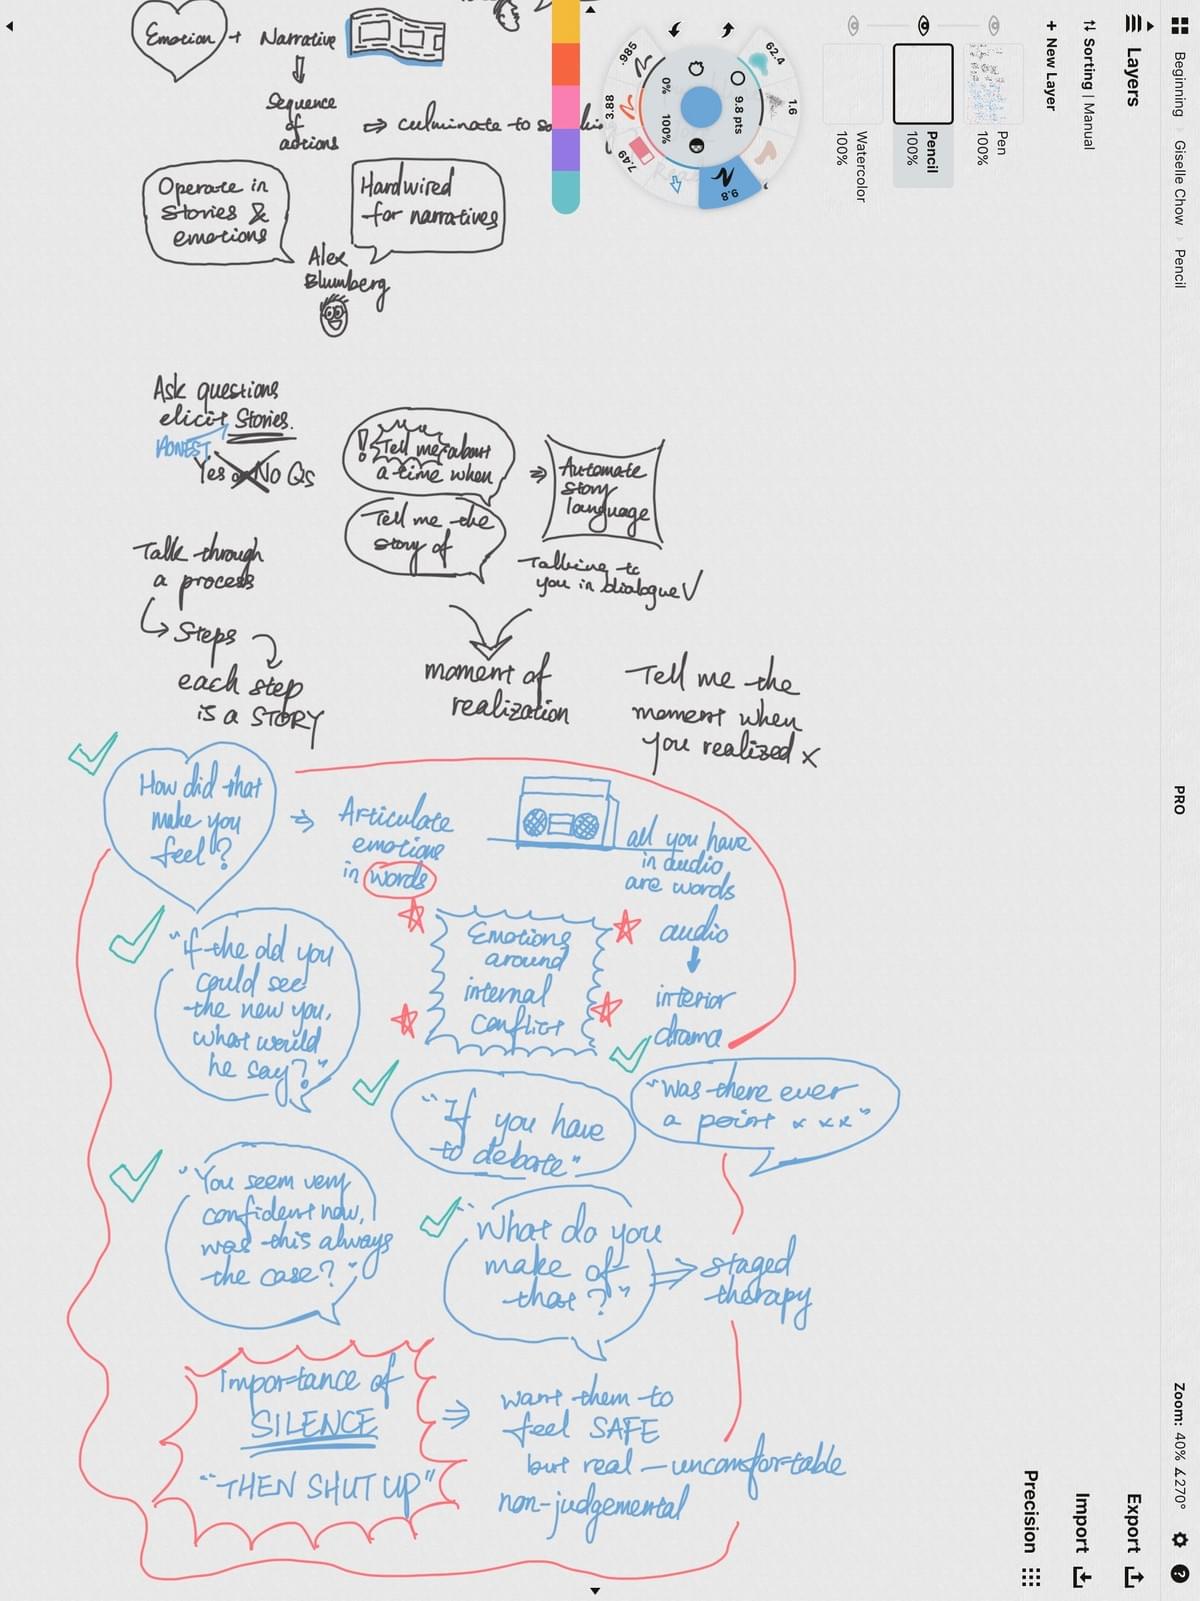 Emotion + Narrative
Sequence
of
actions
⇒ culminate to
Operate in
Stories &
emotions
Hardwired
for narratives
Alex
Blumberg
Ask questions
elicit Stories.
HONEST
Yes or No Qs
! Tell me about
a time when
Tell me the
story of
⇒ Automate
story
language
Talking to
you in dialogue √
Talk through
a process
Steps
each step
is a STORY
moment of
realization
Tell me the
moment when
you realized x
How did that
make you
feel?
⇒ Articulate
emotions
in words
all you have
in audio
are words
audio
interior
drama
Emotions
around
internal
conflict
"If the old you
could see
the new you,
what would
he say?"
"If you have
to debate"
"Was there ever
a point x x x"
"You seem very
confident now,
was this always
the case?"
"What do you
make of
that?"
⇒ staged
therapy
Importance of
SILENCE
"THEN SHUT UP"
⇒ want them to
feel SAFE
but real — uncomfortable
non-judgemental
Beginning
Giselle Chow
Pencil
PRO
Zoom: 40% ∡270°
Layers
Sorting | Manual
+ New Layer
Pen
100%
Pencil
100%
Watercolor
100%
Export
Import
Precision
62.4
1.6
9.8
7.49
3.83
.985
9.8 pts
0%
100%